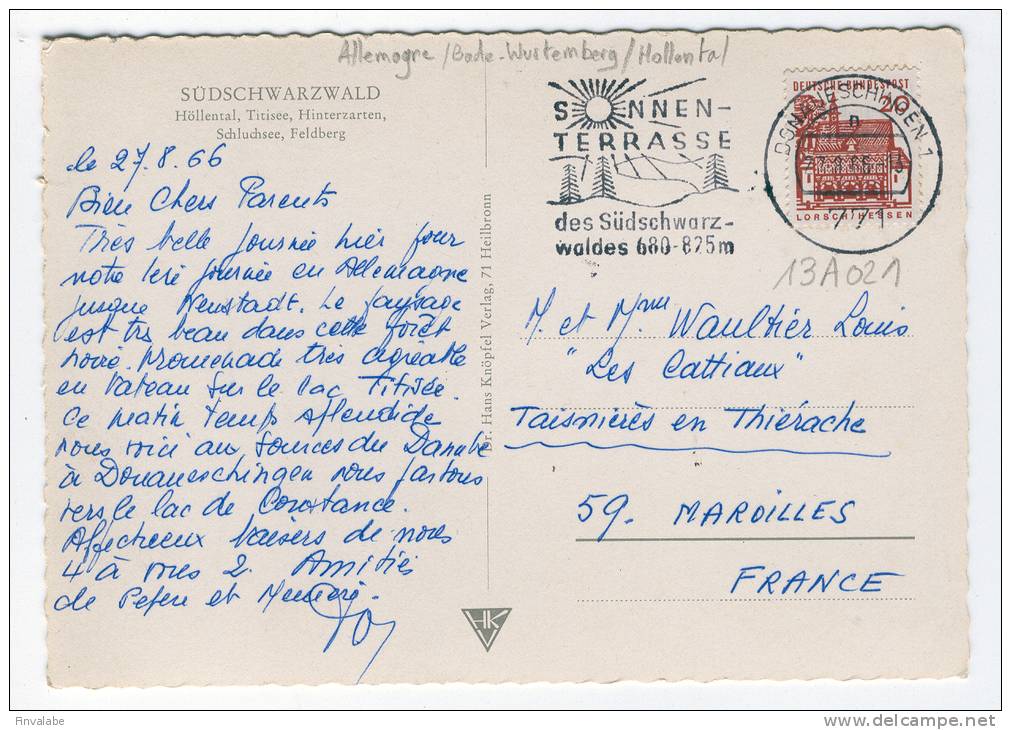 Allemagne/Bade-Wurtemberg/Hollental
SÜDSCHWARZWALD
Höllental, Titisee, Hinterzarten,
Schluchsee, Feldberg
le 27.8.66
Bien Chers Parents
Très belle journée hier pour
notre 1ere journée en Allemagne
jusque Neustadt. Le paysage
est très beau dans cette forêt
noire. Promenade très agréable
en bateau sur le lac Titisée.
Ce matin temps splendide
nous voici au sources du Danube
à Donaueschingen nous partons
vers le lac de Constance.
Affectueux baisers de nous
4 à vous 2. Amitiés
de Pepere et
Dr. Hans Knöpfel Verlag, 71 Heilbronn
HK
SONNEN-
TERRASSE
des Südschwarz-
waldes 680-825m
DEUTSCHE BUNDESPOST
20
LORSCH/HESSEN
DONAUESCHINGEN 1
n
771
13A021
M. et Mme Waultier Louis
"Les Cattiaux"
Taisnières en Thiérache
59. MAROILLES
FRANCE
finvalabe
delcampe.net